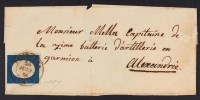 Monsieur Mella Capitaine de
la 19me batterie d'artillerie en
garnison à
Alexandrie